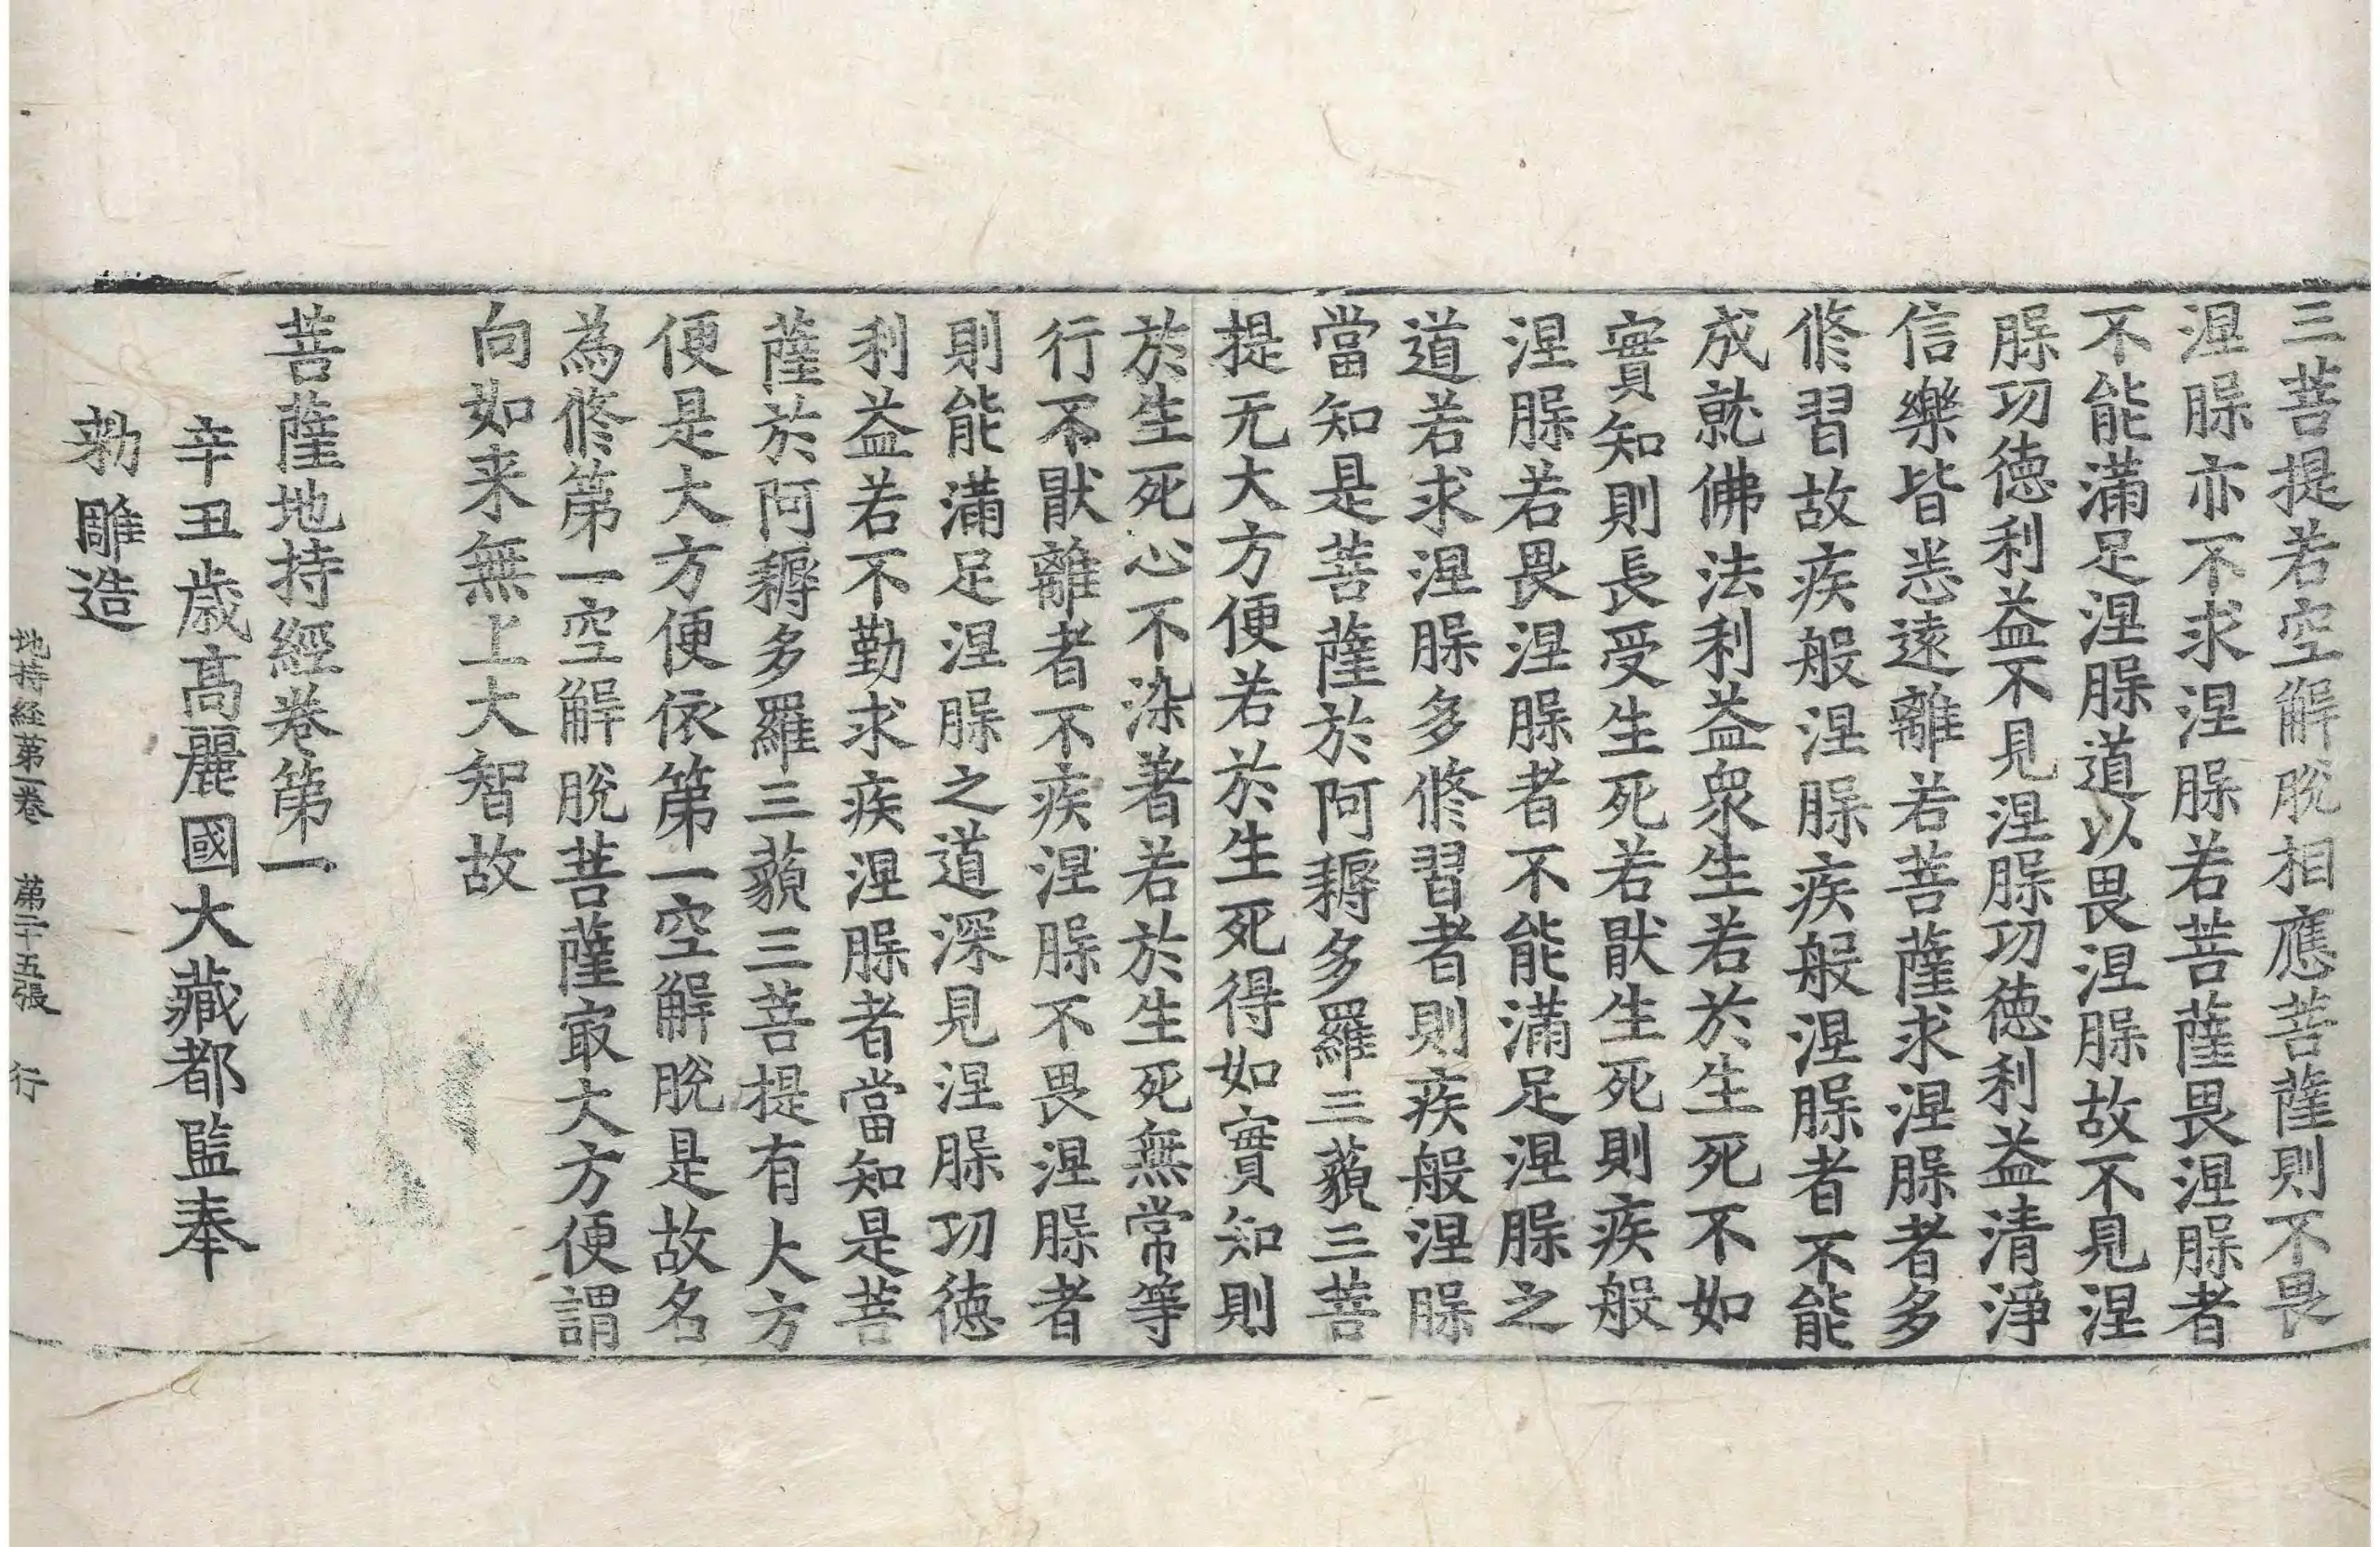 三菩提若空解脫相應菩薩則不畏
涅脲亦不求涅脲若菩薩畏涅脲者
不能滿足涅脲道以畏涅脲故不見涅
脲功德利益不見涅脲功德利益清淨
信樂皆悉遠離若菩薩求涅脲者多
修習故疾般涅脲疾般涅脲者不能
成就佛法利益眾生若於生死不如
實知則長受生死若猒生死則疾般
涅脲若畏涅脲者不能滿足涅脲之
道若求涅脲多修習者則疾般涅脲
當知是菩薩於阿耨多羅三藐三菩
提无大方便若於生死得如實知則
於生死心不染著若於生死無常等
行不猒離者不疾涅脲不畏涅脲者
則能滿足涅脲之道深見涅脲功德
利益若不勤求疾涅脲者當知是菩
薩於阿耨多羅三藐三菩提有大方
便是大方便依第一空解脫是故名
為修第一空解脫菩薩㝡大方便謂
向如来無上大智故
菩薩地持經卷第一
辛丑歲高麗國大藏都監奉
勑雕造
地持経第一卷 第二十五張 行